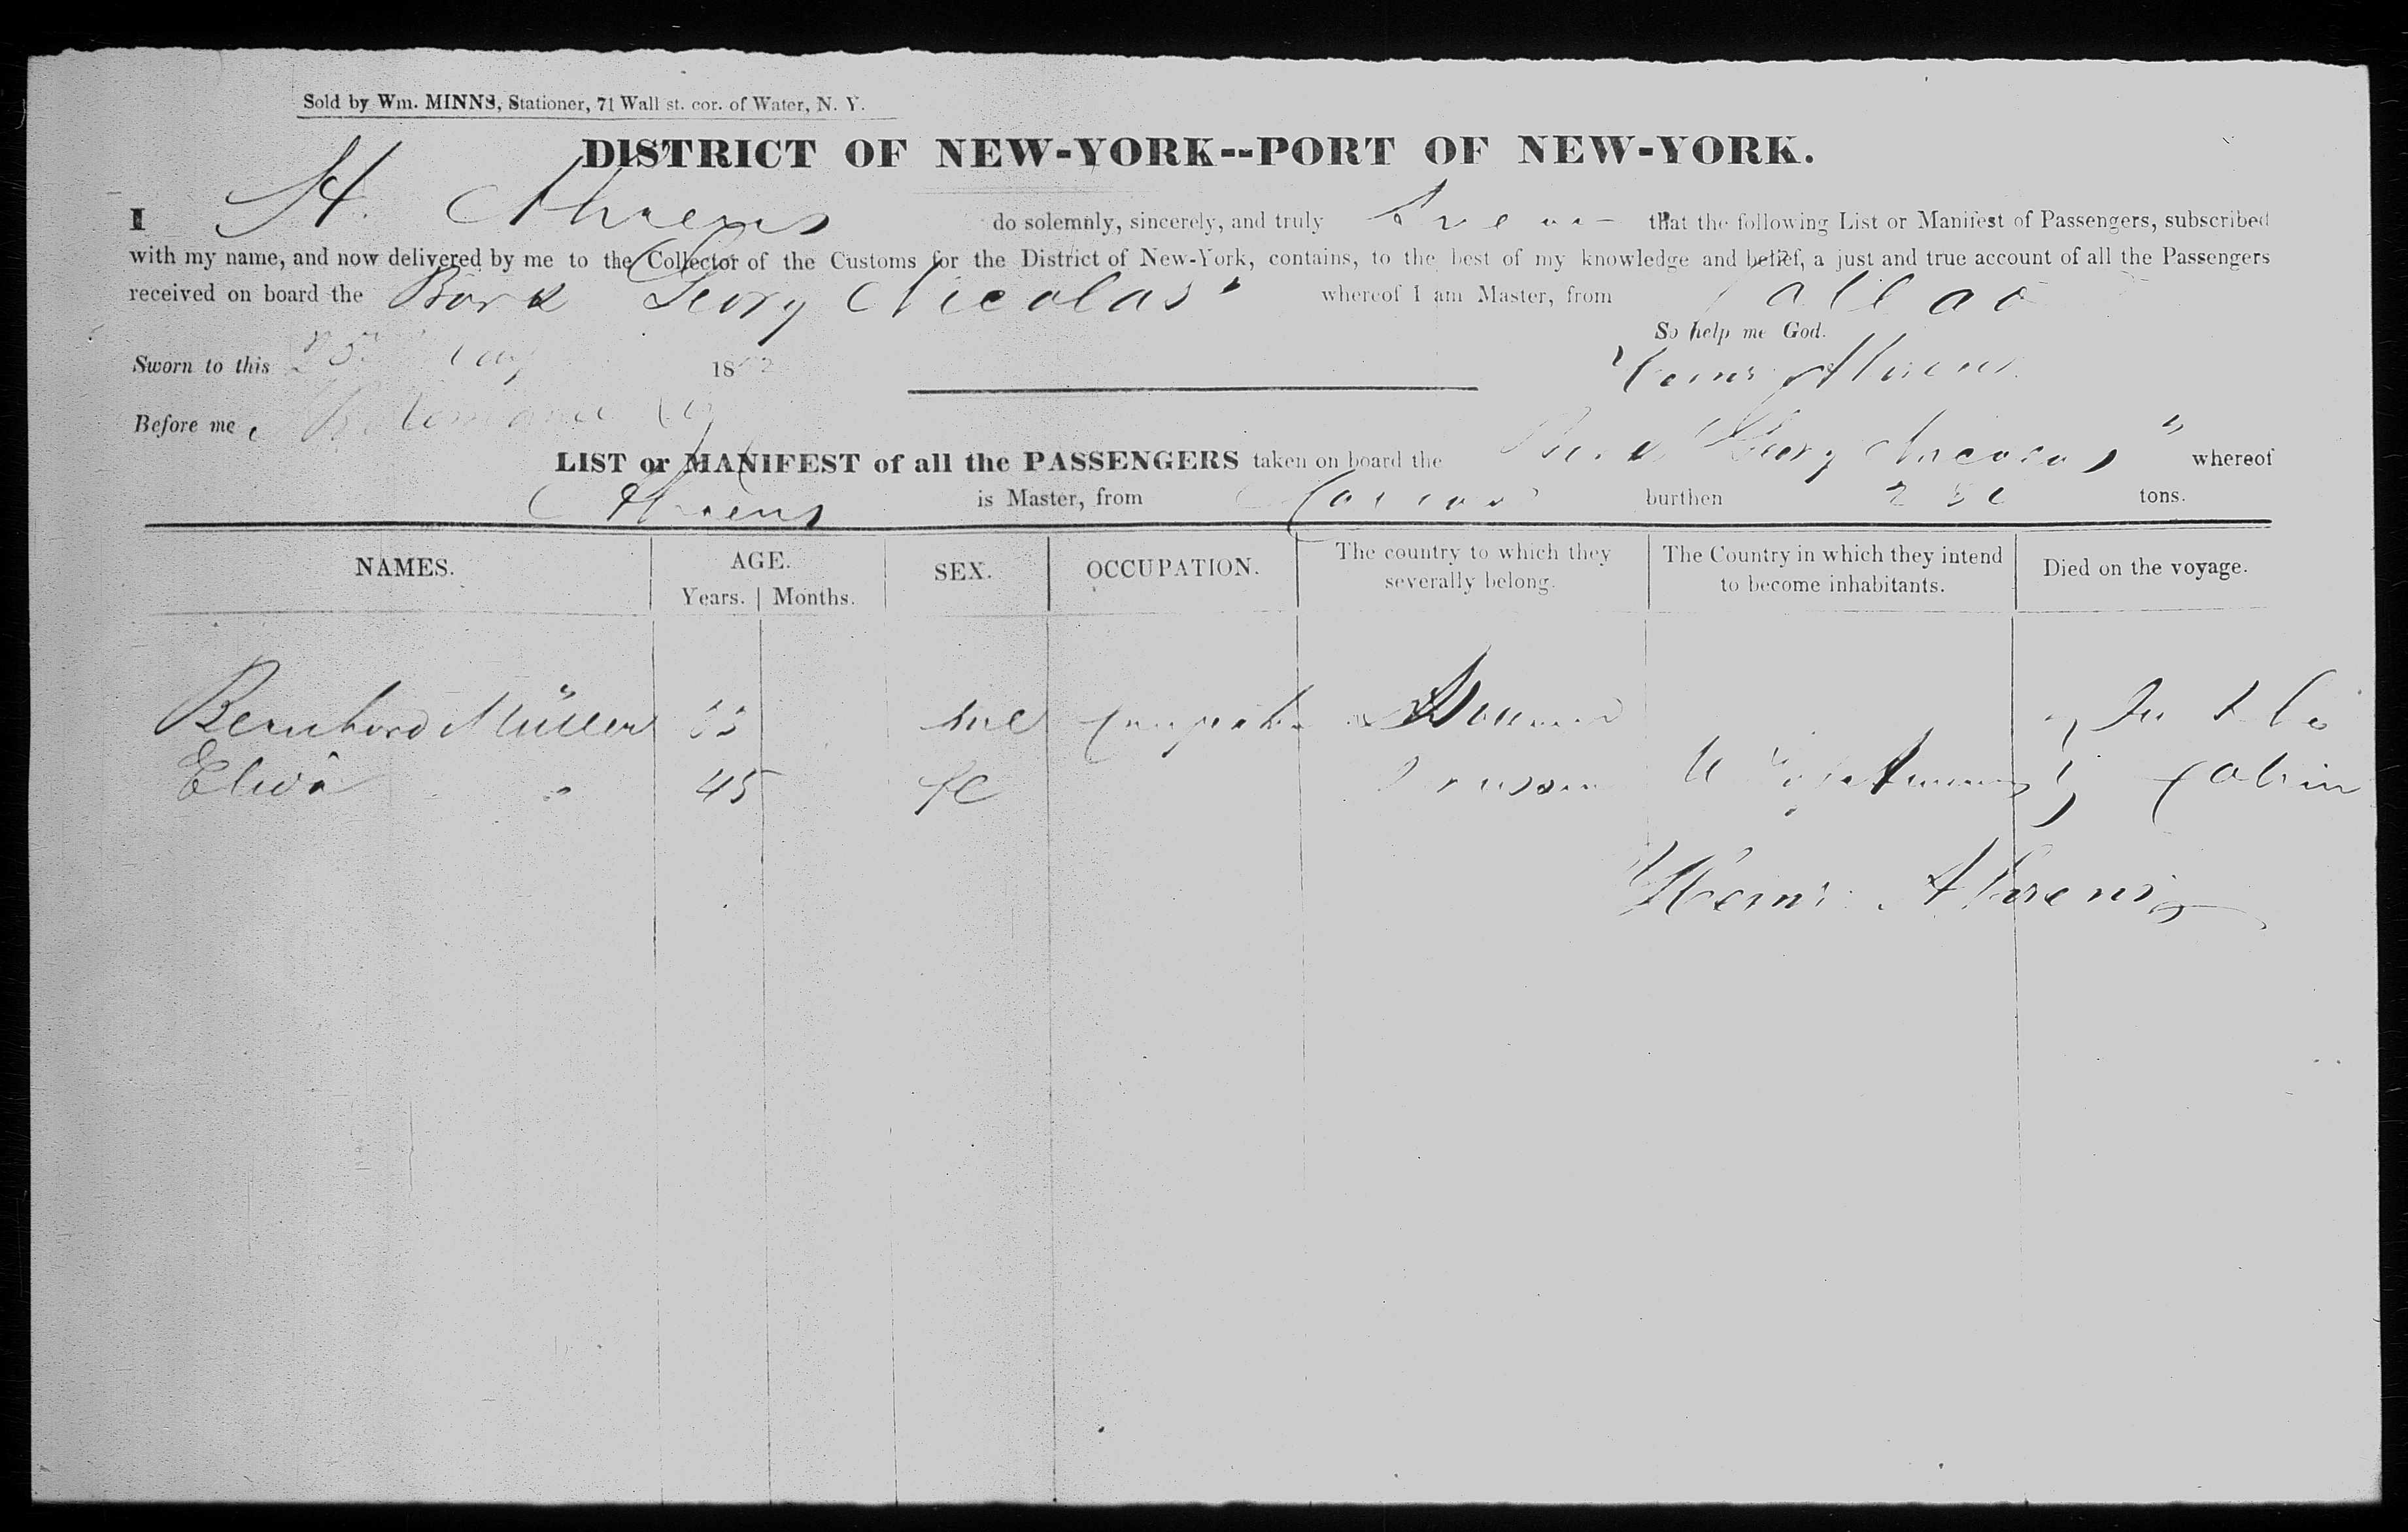 Sold by Wm. MINNS, Stationer, 71 Wall st. cor. of Water, N. Y.
DISTRICT OF NEW-YORK--PORT OF NEW-YORK.
I H. Ahrens do solemnly, sincerely, and truly that the following List or Manifest of Passengers, subscribed
with my name, and now delivered by me to the Collector of the Customs for the District of New-York, contains, to the best of my knowledge and belief, a just and true account of all the Passengers
received on board the Bark Georg Nicolas" whereof I am Master, from Callao
So help me God.
Sworn to this 25 Aug 18
Heinr Ahrens
Before me
LIST or MANIFEST of all the PASSENGERS taken on board the Bark "Georg Nicolas" whereof
Ahrens is Master, from Callao burthen tons.
NAMES. AGE. SEX. OCCUPATION. The country to which they severally belong. The Country in which they intend to become inhabitants. Died on the voyage.
Years. Months.
Bernhard Müller me In the
Elwa " 45 fe Cabin
Heinr. Ahrens